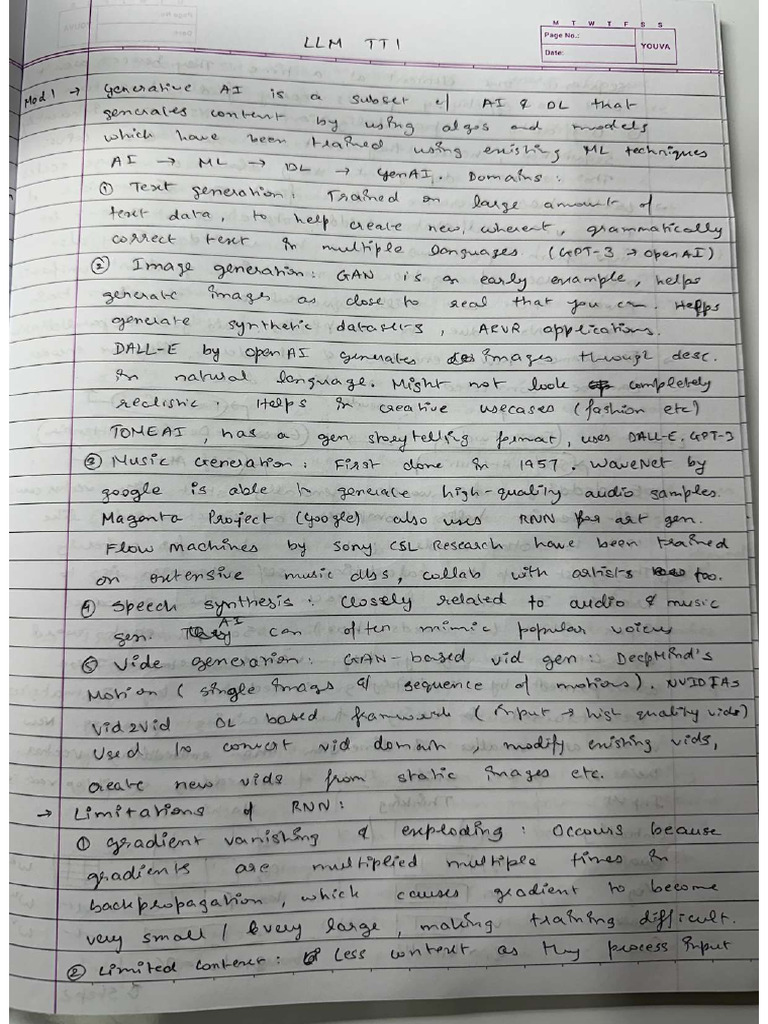 LLM TT 1
M T W T F S S
Page No.:
Date:
YOUVA
Mod 1 → Generative AI is a subset of AI & DL that
generates content by using algos and models
which have been trained using existing ML techniques
AI → ML → DL → GenAI. Domains:
① Text generation: Trained on large amount of
text data, to help create new, coherent, grammatically
correct text in multiple languages. (GPT-3 → OpenAI)
② Image generation: GAN is an early example, helps
generate images as close to real that you can. Helps
generate synthetic datasets, ARVR applications.
DALL-E by openAI generates images through desc.
in natural language. Might not look completely
realistic. Helps in creative usecases (fashion etc)
TOMEAI, has a gen storytelling format, uses DALL-E, GPT-3
③ Music Generation: First done in 1957. WaveNet by
google is able to generate high-quality audio samples.
Magenta Project (Google) also uses RNN for art gen.
Flow Machines by Sony CSL Research have been trained
on extensive music dbs, collab with artists too.
④ Speech synthesis: Closely related to audio & music
gen. AI can often mimic popular voices
⑤ Vide generation: GAN-based vid gen: DeepMind's
Motion (single image & sequence of motions). NVIDIAs
Vid2Vid DL based framework (input → high quality vids)
Used to convert vid domain, modify existing vids,
create new vids from static images etc.
→ Limitations of RNN:
① gradient vanishing & exploding: Occurs because
gradients are multiplied multiple times in
backpropagation, which causes gradient to become
very small / very large, making training difficult.
② Limited context: Less context as they process input